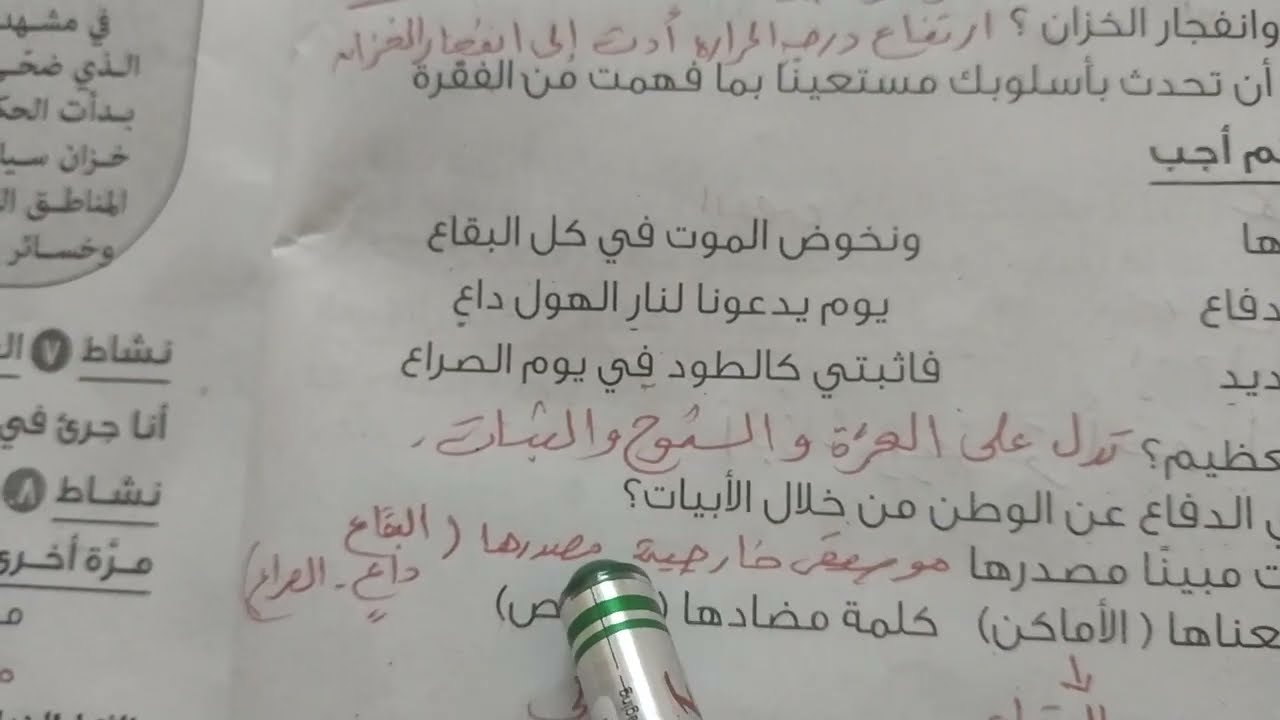 وانفجار الخزان ؟ ارتفاع درجه الحراره أدت إلى انفجار الخزان
أن تحدث بأسلوبك مستعينًا بما فهمت من الفقرة
م أجب
ها ونخوض الموت في كل البقاع
دفاع يوم يدعونا لنارِ الهول داعٍ
ديدِ فاثبتي كالطود في يوم الصراع
عظيم؟ تدل على العزة والشموخ والثبات.
ي الدفاع عن الوطن من خلال الأبيات؟
ت مبينًا مصدرها موسيقى خارجية مصدرها (البقاع
داعٍ - الصراع)
عناها (الأماكن) كلمة مضادها ( ص)
في مشهد
الذي ضحّى
بدأت الحك
خزان سيا
المناطق ال
وخسائر
نشاط ٧ ال
أنا جرئ في
نشاط ٨
مرَّة أخرى